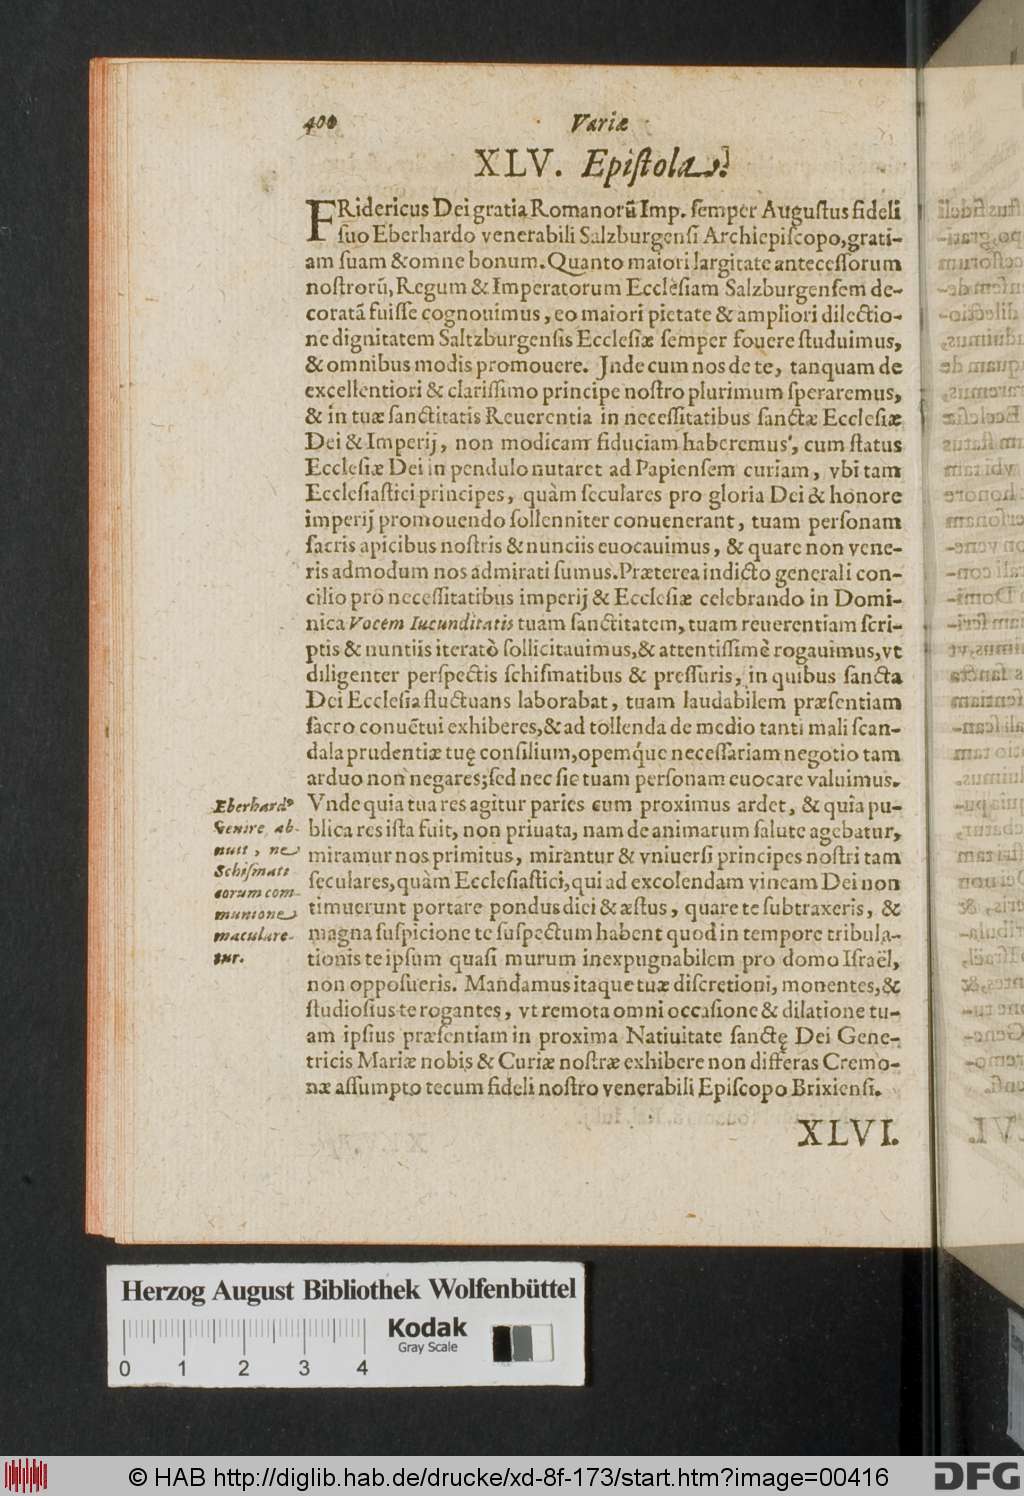 400
Variæ
XLV. Epistola.
FRidericus Dei gratia Romanorū Imp. semper Augustus fideli
suo Eberhardo venerabili Salzburgensi Archiepiscopo, grati-
am suam & omne bonum. Quanto maiori largitate antecessorum
nostrorū, Regum & Imperatorum Ecclesiam Salzburgensem de-
coratā fuisse cognouimus, eo maiori pietate & ampliori dilectio-
ne dignitatem Saltzburgensis Ecclesiæ semper fouere studuimus,
& omnibus modis promouere. Jnde cum nos de te, tanquam de
excellentiori & clarissimo principe nostro plurimum speraremus,
& in tuæ sanctitatis Reuerentia in necessitatibus sanctæ Ecclesiæ
Dei & Imperij, non modicam fiduciam haberemus, cum status
Ecclesiæ Dei in pendulo nutaret ad Papiensem curiam, vbi tam
Ecclesiastici principes, quàm seculares pro gloria Dei & honore
imperij promouendo sollenniter conuenerant, tuam personam
sacris apicibus nostris & nunciis euocauimus, & quare non vene-
ris admodum nos admirati sumus. Præterea indicto generali con-
cilio pro necessitatibus imperij & Ecclesiæ celebrando in Domi-
nica Vocem Iucunditatis tuam sanctitatem, tuam reuerentiam scri-
ptis & nuntiis iteratò sollicitauimus, & attentissimè rogauimus, vt
diligenter perspectis schismatibus & pressuris, in quibus sancta
Dei Ecclesia fluctuans laborabat, tuam laudabilem præsentiam
sacro conuētui exhiberes, & ad tollenda de medio tanti mali scan-
dala prudentiæ tuę consilium, opemq́ue necessariam negotio tam
arduo non negares; sed nec sic tuam personam euocare valuimus.
Vnde quia tua res agitur paries cum proximus ardet, & quia pu-
blica res ista fuit, non priuata, nam de animarum salute agebatur,
miramur nos primitus, mirantur & vniuersi principes nostri tam
seculares, quàm Ecclesiastici, qui ad excolendam vineam Dei non
timuerunt portare pondus diei & æstus, quare te subtraxeris, &
magna suspicione te suspectum habent quod in tempore tribula-
tionis te ipsum quasi murum inexpugnabilem pro domo Israël,
non opposueris. Mandamus itaque tuæ discretioni, monentes, &
studiosius te rogantes, vt remota omni occasione & dilatione tu-
am ipsius præsentiam in proxima Natiuitate sanctę Dei Gene-
tricis Mariæ nobis & Curiæ nostræ exhibere non differas Cremo-
næ assumpto tecum fideli nostro venerabili Episcopo Brixiensi.
Eberhardꝰ
venire ab-
nuit, ne
Schismati
corum com-
munione
maculare-
tur.
XLVI.
Herzog August Bibliothek Wolfenbüttel
0 1 2 3 4
Kodak
Gray Scale
© HAB http://diglib.hab.de/drucke/xd-8f-173/start.htm?image=00416
DFG